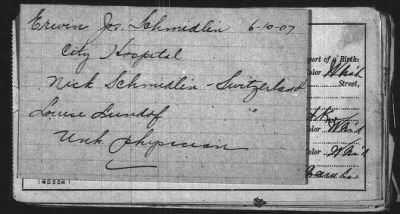 Erwin Jos. Schmidlin 6-10-07
City Hospital
Nick Schmidlin - Switzerland
Louise Lundof
Unk physician
port of a Birth:
olor White
Street,
olor Whit
olor Whit